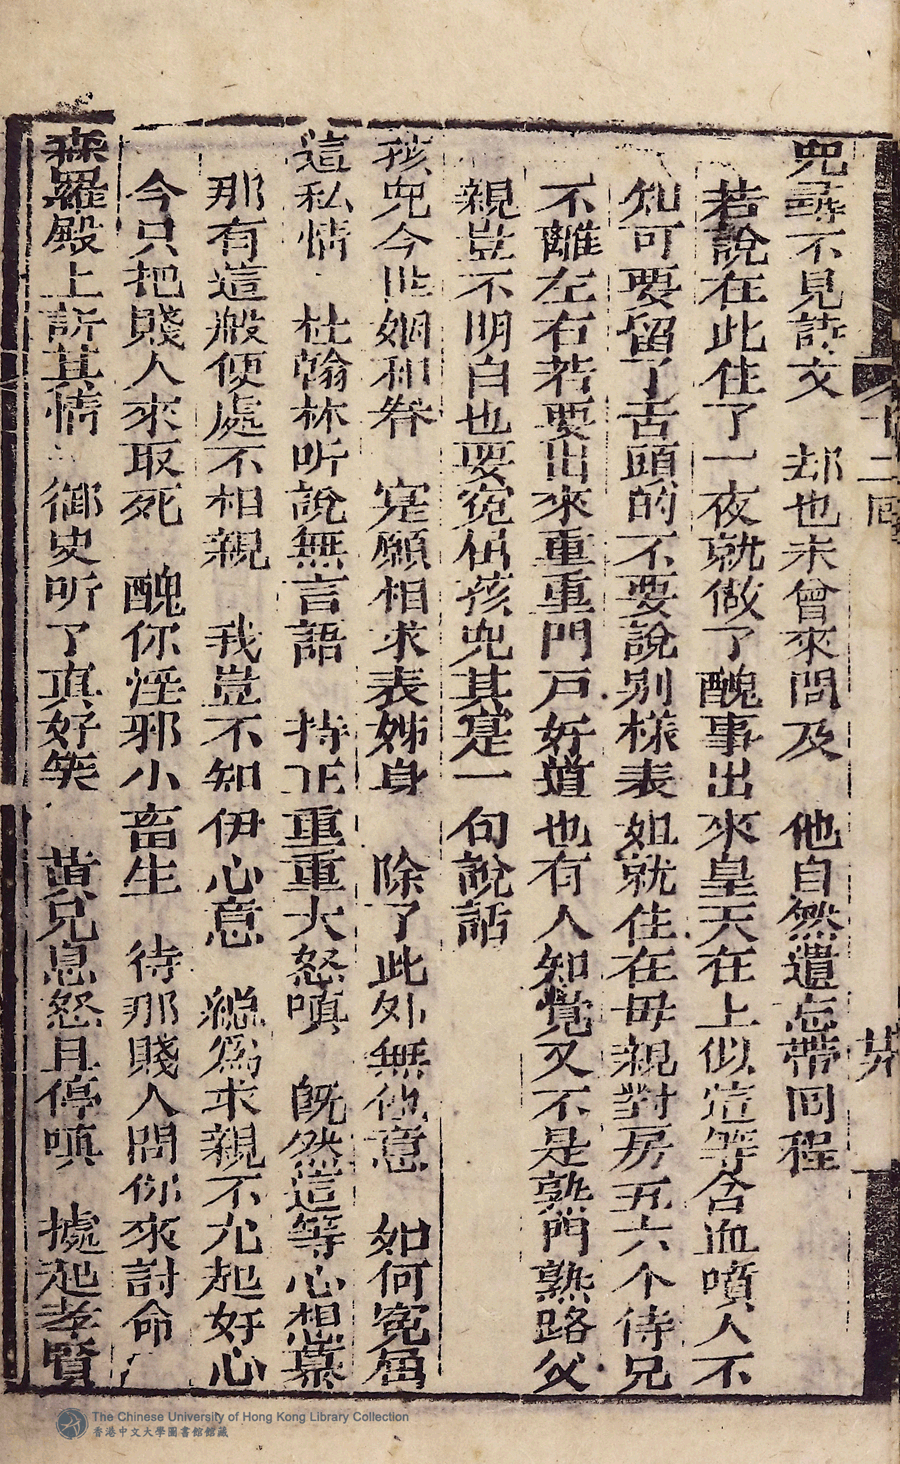 十二回
廿九
兜尋不見詩文 却也未曾來問及 他自然遺忘帶回程
若說在此住了一夜就做了醜事出來皇天在上似這等含血噴人不
知可要留了舌頭的不要說別樣表姐就住在母親對房五六个侍兒
不離左右若要出來重重門戶好道也有人知覺又不是熟門熟路父
親豈不明白也要冤屈孩兒其寔一句說話
孩兒今世姻和眷 寔願相求表姊身 除了此外無他意 如何冤屈
這私情 杜翰林听說無言語 持正重重大怒嗔 既然這等心想慕
那有這般便處不相親 我豈不知伊心意 縂為求親不允起好心
今只把賤人來取死 醜你淫邪小畜生 待那賤人問你來討命
森羅殿上訴其情 御史听了真好笑 黄兄息怒且停嗔 據起孝賢
The Chinese University of Hong Kong Library Collection
香港中文大學圖書館館藏